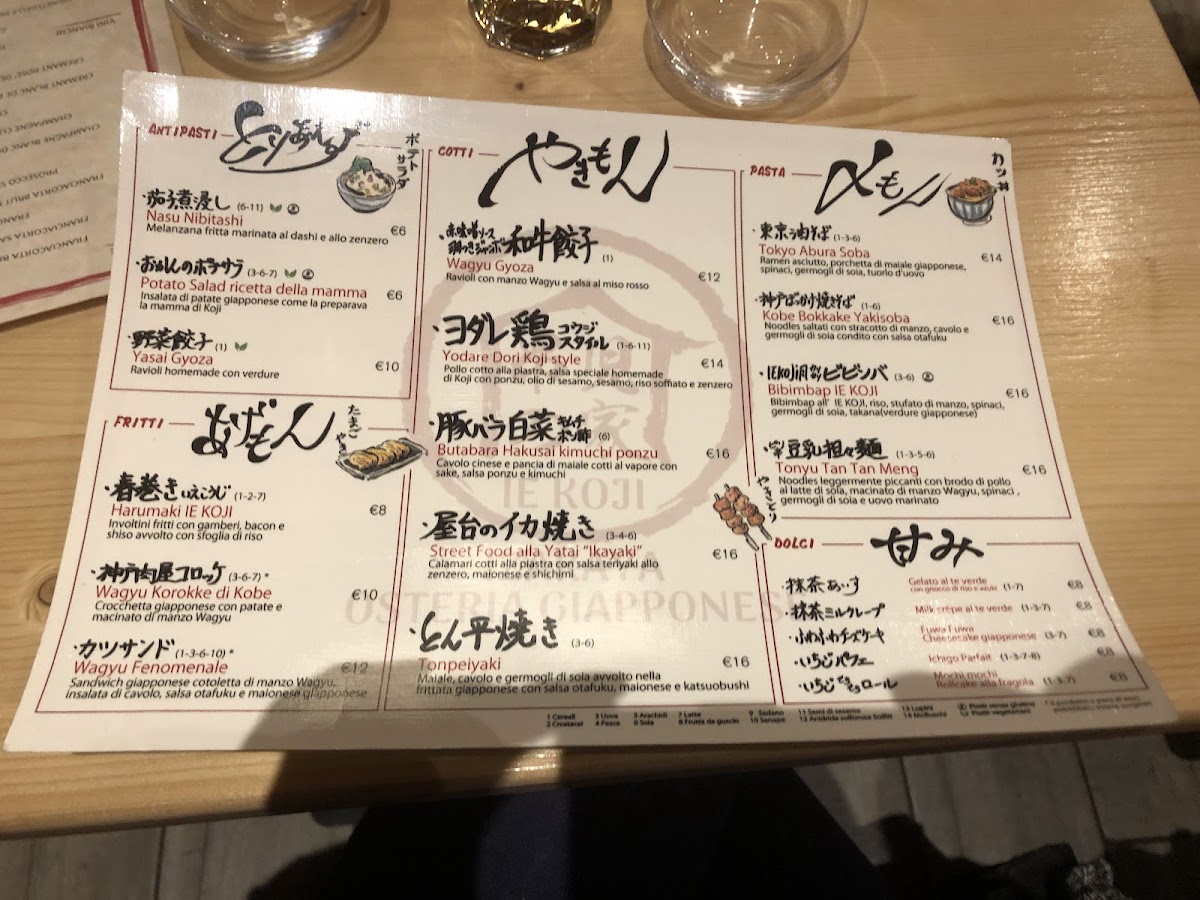 VINI BIANCHI
CREMANT ROSE' DE
CREMANT BLANC DE
CHAMPAGNE
CHAMPAGNE BLANC
PROSECCO
FRANCIACORTA BRUT
FRANCIACORTA
ANTIPASTI
とりあえず
ポテトサラダ
茄子煮浸し (6-11)
Nasu Nibitashi
€6
Melanzana fritta marinata al dashi e allo zenzero
おかんのポテサラ (3-6-7)
Potato Salad ricetta della mamma
€6
Insalata di patate giapponese come la preparava
la mamma di Koji
野菜餃子 (1)
Yasai Gyoza
€10
Ravioli homemade con verdure
FRITTI
あげもん
たまごやき
春巻きいえこうじ (1-2-7)
Harumaki IE KOJI
€8
Involtini fritti con gamberi, bacon e
shiso avvolto con sfoglia di riso
神戸肉屋コロッケ (3-6-7) *
Wagyu Korokke di Kobe
€10
Crocchetta giapponese con patate e
macinato di manzo Wagyu
カツサンド (1-3-6-10) *
Wagyu Fenomenale
€12
Sandwich giapponese cotoletta di manzo Wagyu,
insalata di cavolo, salsa otafuku e maionese giapponese
COTTI
やきもん
赤味噌ソース
和牛餃子 (1)
Wagyu Gyoza
€12
Ravioli con manzo Wagyu e salsa al miso rosso
ヨダレ鶏 コウジスタイル (1-6-11)
Yodare Dori Koji style
€14
Pollo cotto alla piastra, salsa speciale homemade
di Koji con ponzu, olio di sesamo, sesamo, riso soffiato e zenzero
豚バラ白菜 キムチポン酢 (6)
Butabara Hakusai kimuchi ponzu
€16
Cavolo cinese e pancia di maiale cotti al vapore con
sake, salsa ponzu e kimuchi
やきとり
屋台のイカ焼き (3-4-6)
Street Food alla Yatai “Ikayaki”
€16
Calamari cotti alla piastra con salsa teriyaki allo
zenzero, maionese e shichimi
とん平焼き (3-6)
Tonpeiyaki
€16
Maiale, cavolo e germogli di soia avvolto nella
frittata giapponese con salsa otafuku, maionese e katsuobushi
IE KOJI
OSTERIA GIAPPONESE
PASTA
〆もん
カツ丼
東京油そば (1-3-6)
Tokyo Abura Soba
€14
Ramen asciutto, porchetta di maiale giapponese,
spinaci, germogli di soia, tuorlo d'uovo
神戸ぼっかけ焼きそば (1-6)
Kobe Bokkake Yakisoba
€16
Noodles saltati con stracotto di manzo, cavolo e
germogli di soia condito con salsa otafuku
ビビンバ (3-6)
Bibimbap IE KOJI
€16
Bibimbap all' IE KOJI, riso, stufato di manzo, spinaci,
germogli di soia, takana(verdure giapponese)
豆乳担々麺 (1-3-5-6)
Tonyu Tan Tan Meng
€16
Noodles leggermente piccanti con brodo di pollo
al latte di soia, macinato di manzo Wagyu, spinaci ,
germogli di soia e uovo marinato
DOLCI
甘み
抹茶あいす Gelato al te verde (1-7) €8
con gnocco di riso e azuki
抹茶ミルクレープ Milk crêpe al te verde (1-3-7) €8
ふわふわチーズケーキ Fuwa Fuwa Cheesecake giapponese (3-7) €8
いちじパフェ Ichigo Parfait (1-3-7-8) €8
ロール Mochi mochi Rollcake alla fragola (1-3-7) €8
1 Cereali 3 Uova 5 Arachidi 7 Latte 9 Sedano 11 Semi di sesamo 13 Lupini Piatti senza glutine
2 Crostacei 4 Pesce 6 Soia 8 Frutta da guscio 10 Senape 12 Anidride solforosa Solfiti 14 Molluschi Piatti vegetariani